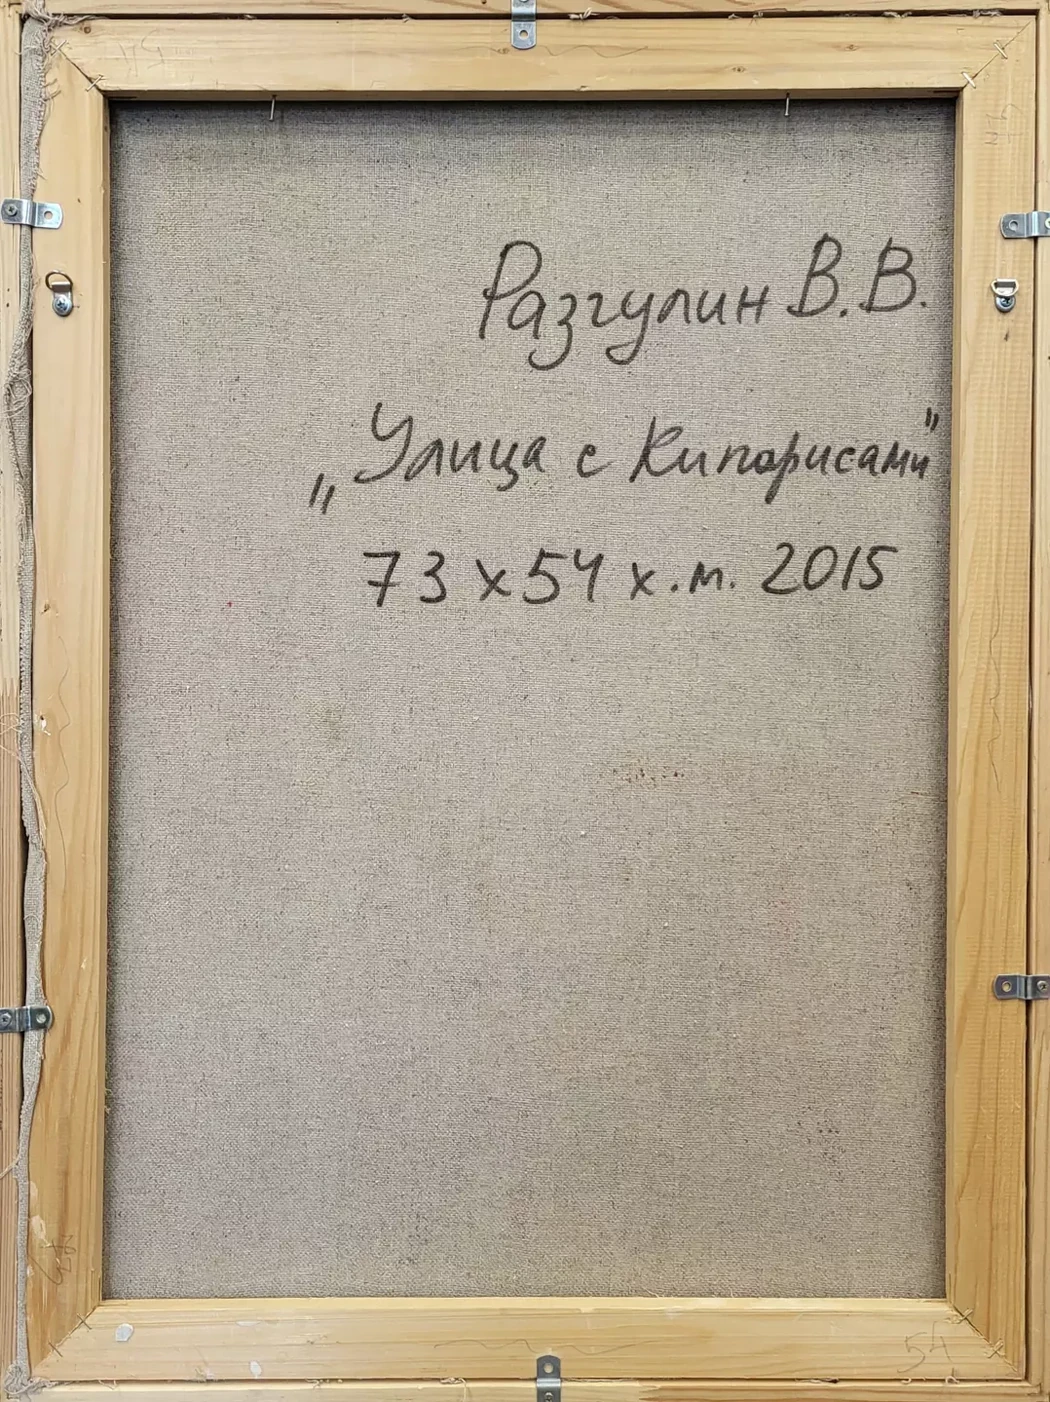 Разгулин В.В.
„Улица с Кипарисами"
73 х 54 х.м. 2015
54